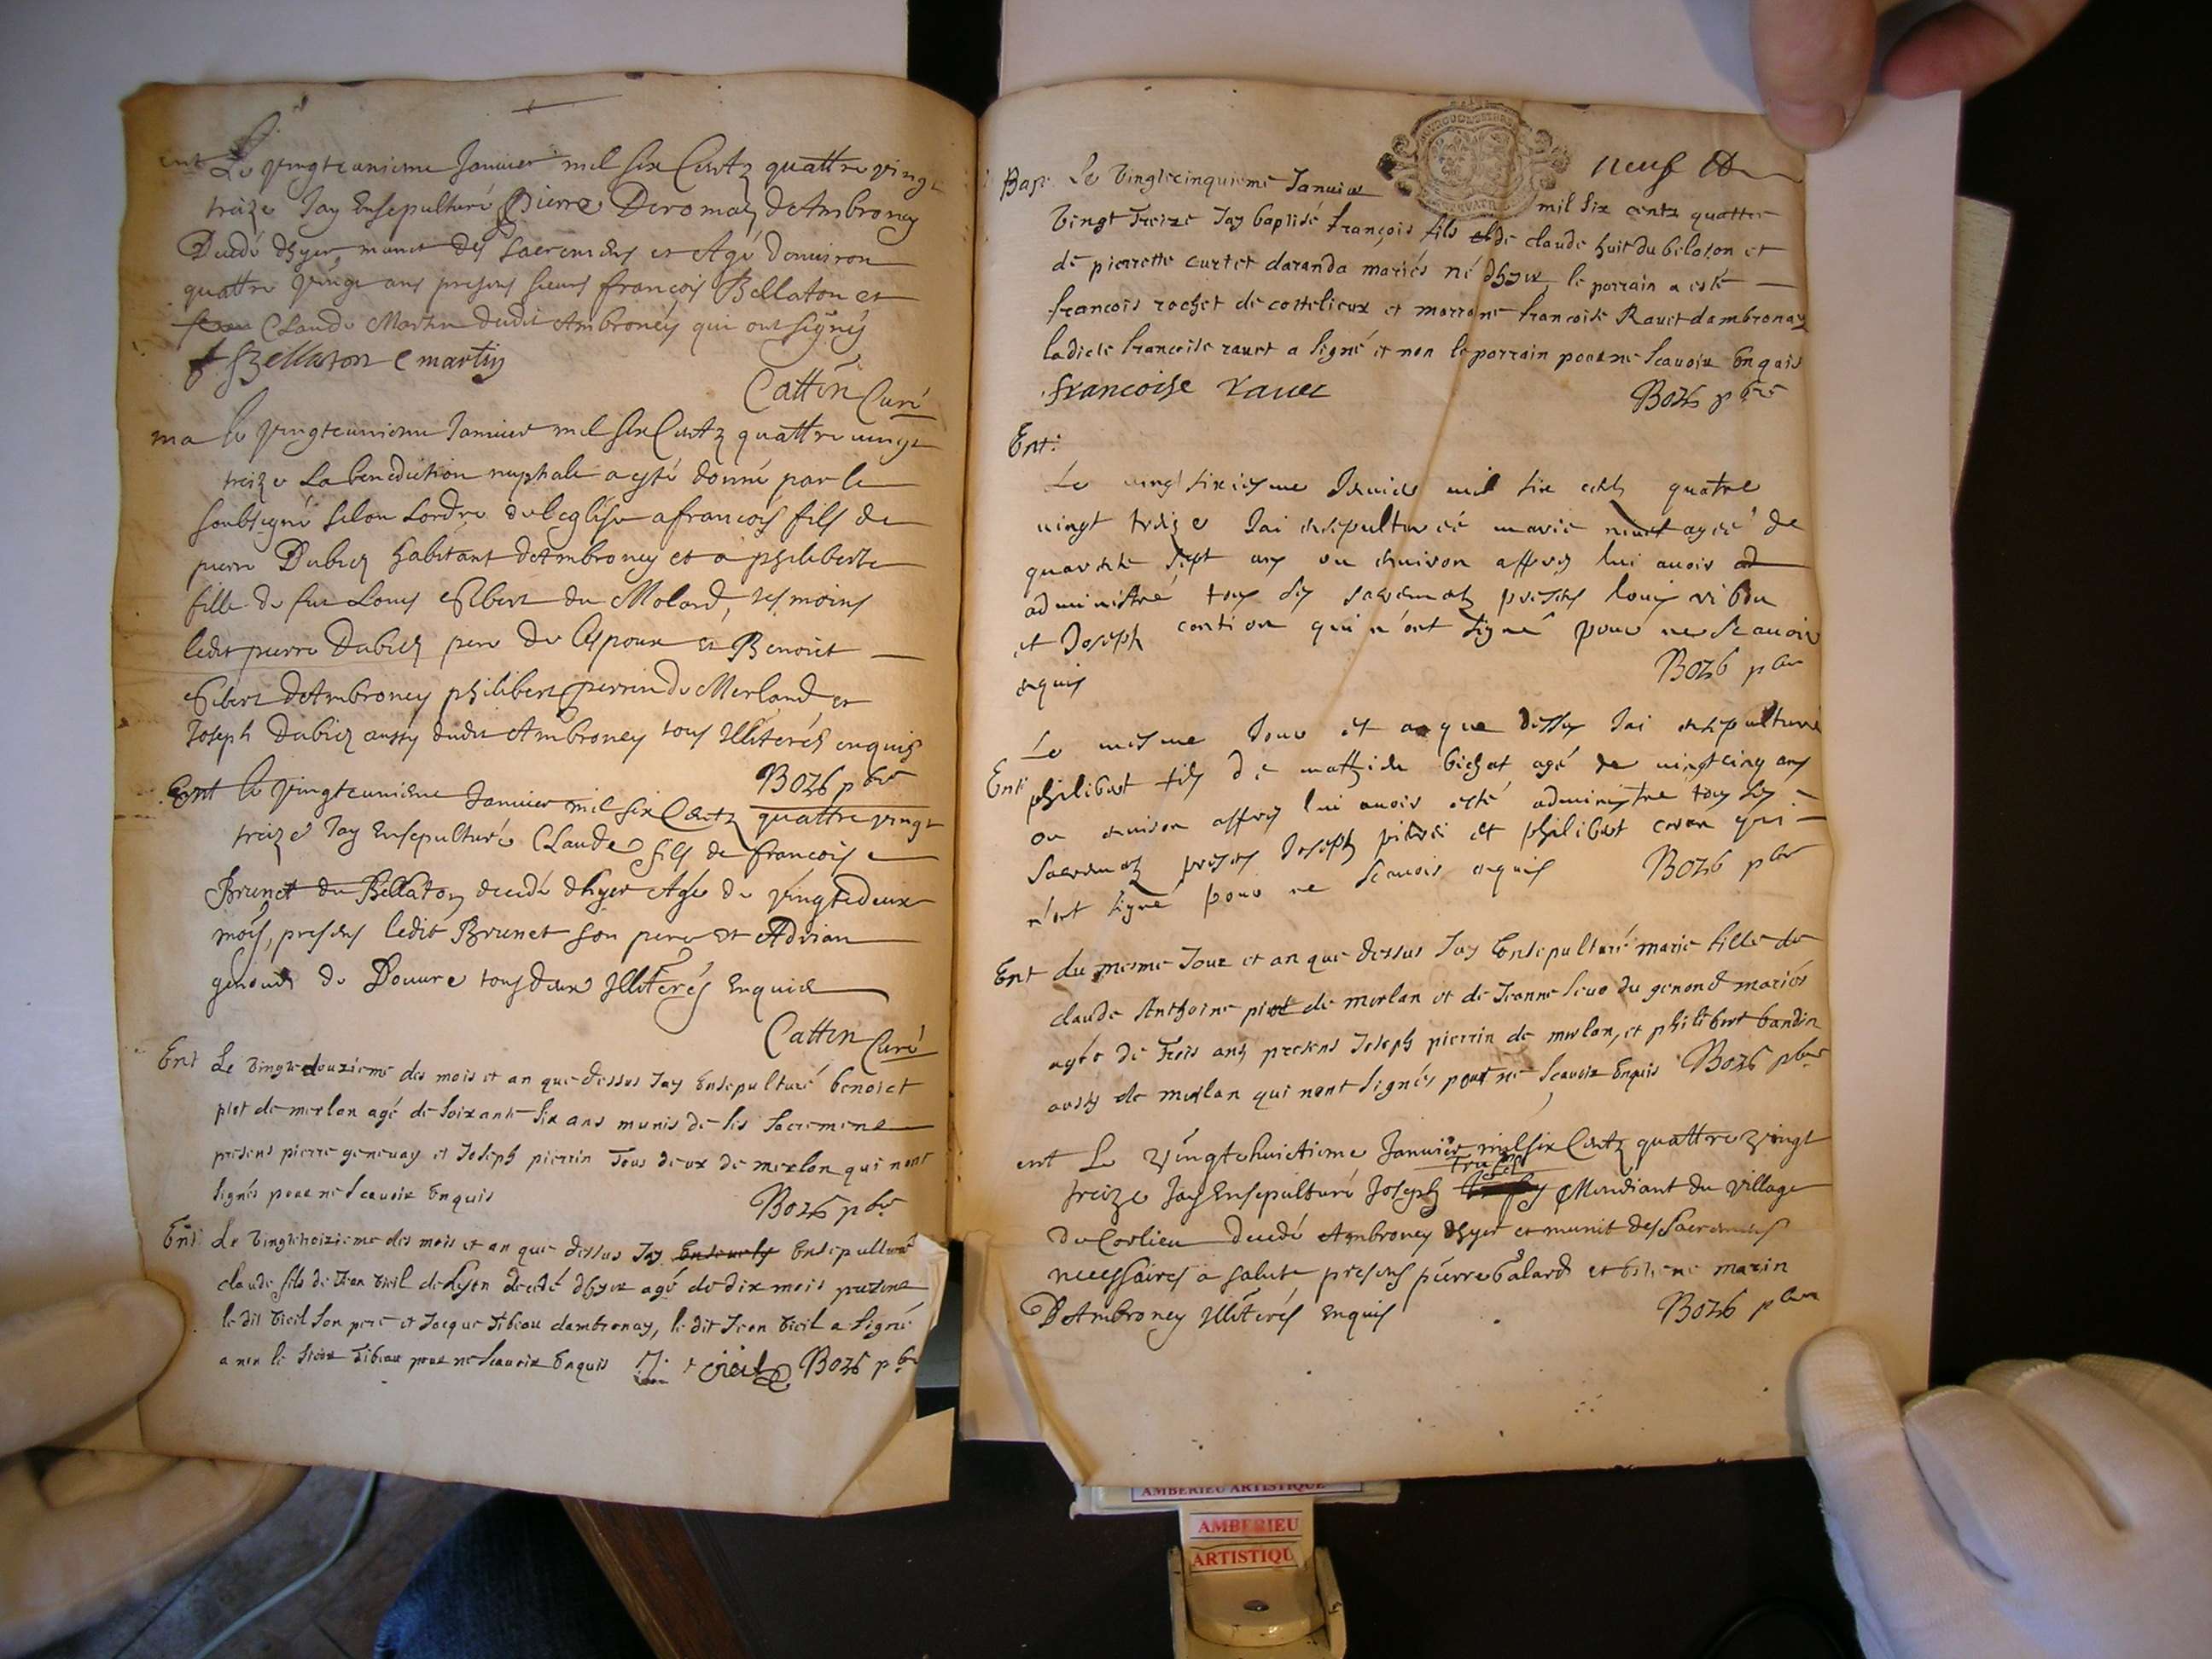 ent Le vingteunieme Janvier mil six Centz quattre vingt
treize Jay Ensepulturé Pierre Deromaz d'Ambroney
Decedé dhyer, munit des sacremens et Agé denviron
quattre vingt ans presens sieurs françois Bellaton et
Claude Martin dudit Ambroney qui ont signés
f Bellaton C martin
Cattin Curé
ma le vingteunieme Janvier mil six Centz quattre vingt
treize La benediction nuptiale a esté donné par le
soubsigné selon Lordre de leglise a francois fils de
pierre Dubiez habitant dAmbroney et a philiberte
fille de feu Louis Gibert du Molard, tesmoins
ledit pierre Dubiez pere de Lespoux et Benoict
Gibert dAmbroney philibert perrin de Merland et
Joseph Dubiez aussy dudit Ambroney tous Illiterés enquis
Bozs pbre
Ent le vingteunieme Janvier mil six Centz quattre vingt
treize Jay Ensepulturé Claude fils de francois
Brunet du Bellaton decedé dhyer Agé de vingtedeux
mois, presens ledit Brunet son pere et Adrian
genoud de Douvre tous deux Illiterés Enquis
Cattin Curé
Ent Le vingtedouxieme des mois et an que dessus Jay Ensepulturé benoict
piot de merlan agé de soixante six ans munis de ses sacremens
presens pierre genevay et Joseph pierrin Tous deux de merlan qui nont
signés pour ne scavoir Enquis
Bozs pbre
Ent Le vingtetroizieme des mois et an que dessus Jay Ensepulturé
claude fils de Jean vieil de Lyon decedé dhyer agé de dix mois presens
le dit vieil son pere et Jacque Tibeau dambronay, le dit Jean vieil a signé
a non le sieur Tibeau pour ne scavoir Enquis J. vieil Bozs pbre
neuf
Bap. Le vingtecinquieme Janvier mil six centz quattre
vingt Treize Jay baptisé françois fils de claude huit du belaton et
de pierrette curtet daranda mariés né dhyer, le parrain a esté
francois rochet de costelieux et marrane francoise Ravet dambronay
ladicte francoise ravet a signé et non le parrain pour ne scavoir Enquis
francoise ravet
Bozs pbre
Ent:
Le vingt sixiesme Janvier mil six cents quatre
vingt treize Jai ensepulturéé marie agée de
quarente sept ans ou environ apprez lui avoir
administré tous ses sacrements presens louis
et Joseph qui n'ont signé pour ne scavoir
enquis
Bozs pbre
Ent Le mesme Jour et an que dessus Jai ensepulturé
philibert fils de bichat agé de vingt cinq ans
ou environ apprez lui avoir esté administré tous ses
sacrements presens Joseph et philibert qui
n'ont signé pour ne scavoir enquis
Bozs pbre
Ent du mesme Jour et an que dessus Jay Ensepulturé marie fille de
claude Anthoine piot de merlan et de Jeanne du genoud mariés
agée de Trois ans presens Joseph pierrin de merlan, et philibert bandin
aussy de merlan qui nont signés pour ne scavoir Enquis Bozs pbre
ent Le vingtehuictieme Janvier mil six Centz quattre vingt
treize Jay Ensepulturé Joseph Mendiant du village
de Corlieu decedé Ambroney dhyer et munit des sacremens
necessaires a salut presens pierre balard et estiene marin
DAmbroney Illiterés Enquis
Bozs pbre
AMBERIEU ARTISTIQUE
AMBERIEU
ARTISTIQU